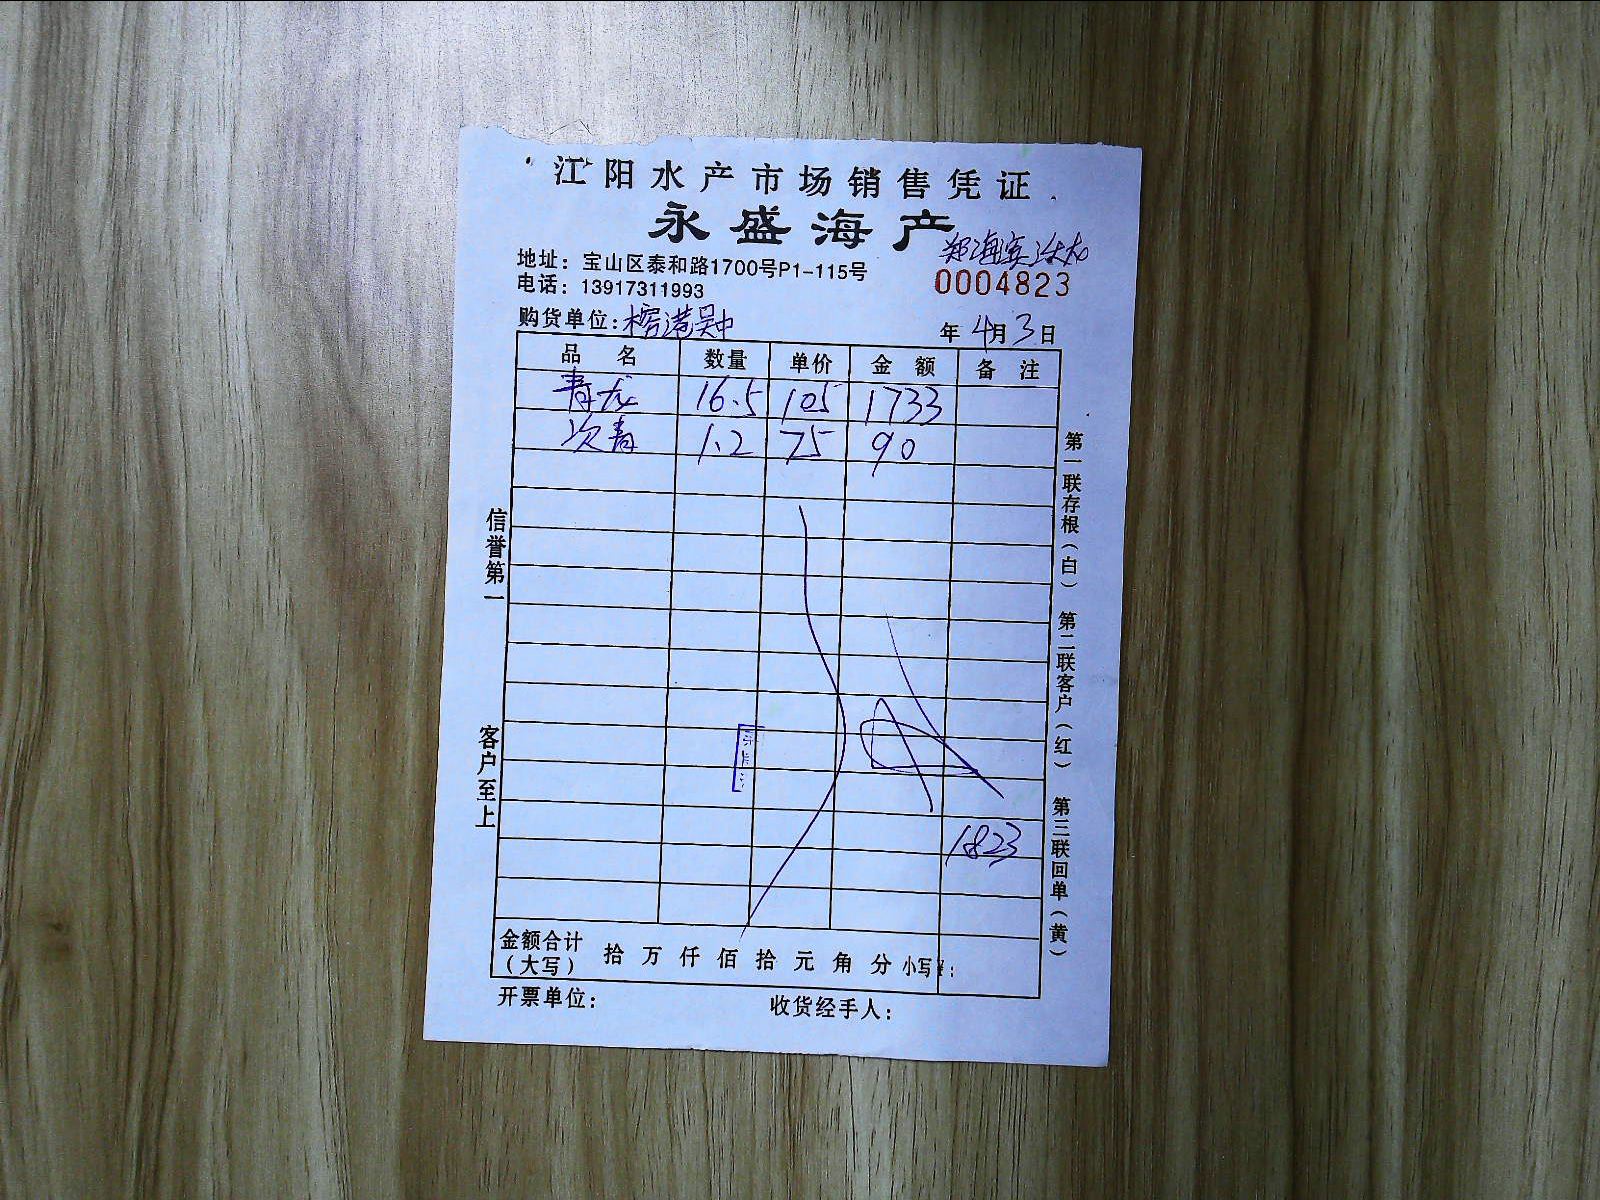 江阳水产市场销售凭证
永盛海产
郑海宾
地址：宝山区泰和路1700号P1-115号
0004823
电话：13917311993
购货单位：榕港吴中
年 4月 3日
品名 数量 单价 金额 备注
青龙 16.5 105 1733
次青 1.2 75 90
1823
金额合计（大写） 拾 万 仟 佰 拾 元 角 分 小写¥：
开票单位： 收货经手人：
信誉第一 客户至上
第一联存根（白） 第二联客户（红） 第三联回单（黄）